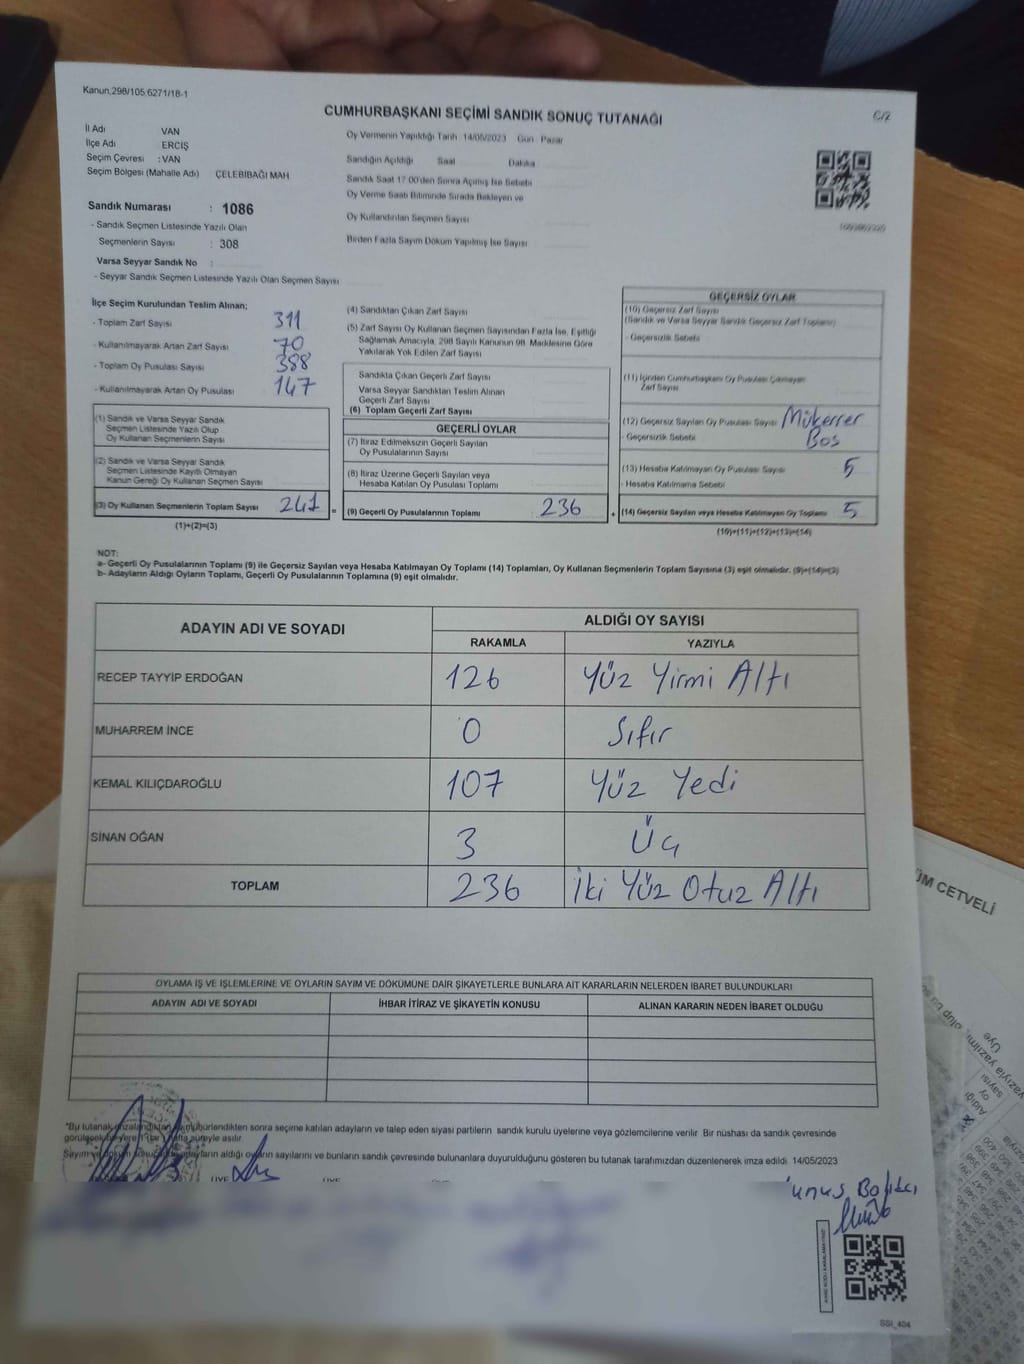 Kanun,298/105,6271/18-1
CUMHURBAŞKANI SEÇİMİ SANDIK SONUÇ TUTANAĞI
C/2
İl Adı VAN
İlçe Adı ERCİŞ
Seçim Çevresi : VAN
Seçim Bölgesi (Mahalle Adı) ÇELEBİBAĞI MAH
Oy Vermenin Yapıldığı Tarih 14/05/2023 Gün Pazar
Sandığın Açıldığı Saat Dakika
Sandık Saat 17.00'den Sonra Açılmış İse Sebebi
Oy Verme Saati Bitiminde Sırada Bekleyen ve
Oy Kullandırılan Seçmen Sayısı
Birden Fazla Sayım Döküm Yapılmış İse Sayısı
Sandık Numarası : 1086
- Sandık Seçmen Listesinde Yazılı Olan
Seçmenlerin Sayısı : 308
Varsa Seyyar Sandık No :
- Seyyar Sandık Seçmen Listesinde Yazılı Olan Seçmen Sayısı
İlçe Seçim Kurulundan Teslim Alınan;
- Toplam Zarf Sayısı 311
- Kullanılmayarak Artan Zarf Sayısı 70
- Toplam Oy Pusulası Sayısı 388
- Kullanılmayarak Artan Oy Pusulası 147
(1) Sandık ve Varsa Seyyar Sandık
Seçmen Listesinde Yazılı Olup
Oy Kullanan Seçmenlerin Sayısı
(2) Sandık ve Varsa Seyyar Sandık
Seçmen Listesinde Kayıtlı Olmayan
Kanun Gereği Oy Kullanan Seçmen Sayısı
(3) Oy Kullanan Seçmenlerin Toplam Sayısı 241
(1)+(2)=(3)
(4) Sandıktan Çıkan Zarf Sayısı
(5) Zarf Sayısı Oy Kullanan Seçmen Sayısından Fazla İse, Eşitliği
Sağlamak Amacıyla, 298 Sayılı Kanunun 98. Maddesine Göre
Yakılarak Yok Edilen Zarf Sayısı
Sandıkta Çıkan Geçerli Zarf Sayısı
Varsa Seyyar Sandıktan Teslim Alınan
Geçerli Zarf Sayısı
(6) Toplam Geçerli Zarf Sayısı
GEÇERLİ OYLAR
(7) İtiraz Edilmeksizin Geçerli Sayılan
Oy Pusulalarının Sayısı
(8) İtiraz Üzerine Geçerli Sayılan veya
Hesaba Katılan Oy Pusulası Toplamı
= (9) Geçerli Oy Pusulalarının Toplamı 236
GEÇERSİZ OYLAR
(10) Geçersiz Zarf Sayısı
(Sandık ve Varsa Seyyar Sandık Geçersiz Zarf Toplamı)
- Geçersizlik Sebebi
(11) İçinden Cumhurbaşkanı Oy Pusulası Çıkmayan
Zarf Sayısı
(12) Geçersiz Sayılan Oy Pusulası Sayısı Mükerrer
- Geçersizlik Sebebi Bos
(13) Hesaba Katılmayan Oy Pusulası Sayısı 5
- Hesaba Katılmama Sebebi
+ (14) Geçersiz Sayılan veya Hesaba Katılmayan Oy Toplamı 5
(10)+(11)+(12)+(13)=(14)
NOT:
a- Geçerli Oy Pusulalarının Toplamı (9) ile Geçersiz Sayılan veya Hesaba Katılmayan Oy Toplamı (14) Toplamları, Oy Kullanan Seçmenlerin Toplam Sayısına (3) eşit olmalıdır. (9)+(14)=(3)
b- Adayların Aldığı Oyların Toplamı, Geçerli Oy Pusulalarının Toplamına (9) eşit olmalıdır.
ADAYIN ADI VE SOYADI ALDIĞI OY SAYISI
RAKAMLA YAZIYLA
RECEP TAYYİP ERDOĞAN 126 Yüz Yirmi Altı
MUHARREM İNCE 0 Sıfır
KEMAL KILIÇDAROĞLU 107 Yüz Yedi
SİNAN OĞAN 3 Üç
TOPLAM 236 İki Yüz Otuz Altı
OYLAMA İŞ VE İŞLEMLERİNE VE OYLARIN SAYIM VE DÖKÜMÜNE DAİR ŞİKAYETLERLE BUNLARA AİT KARARLARIN NELERDEN İBARET BULUNDUKLARI
ADAYIN ADI VE SOYADI İHBAR İTİRAZ VE ŞİKAYETİN KONUSU ALINAN KARARIN NEDEN İBARET OLDUĞU
*Bu tutanak mühürlendikten sonra seçime katılan adayların ve talep eden siyasi partilerin sandık kurulu üyelerine veya gözlemcilerine verilir. Bir nüshası da sandık çevresinde
görülecek bir yere 1 (bir) hafta süreyle asılır.
adayların aldığı oyların sayılarını ve bunların sandık çevresinde bulunanlara duyurulduğunu gösteren bu tutanak tarafımızdan düzenlenerek imza edildi. 14/05/2023
ÜYE ÜYE
SSI_404
ÜM CETVELİ
Üye
Aldığı
oy
sayısı